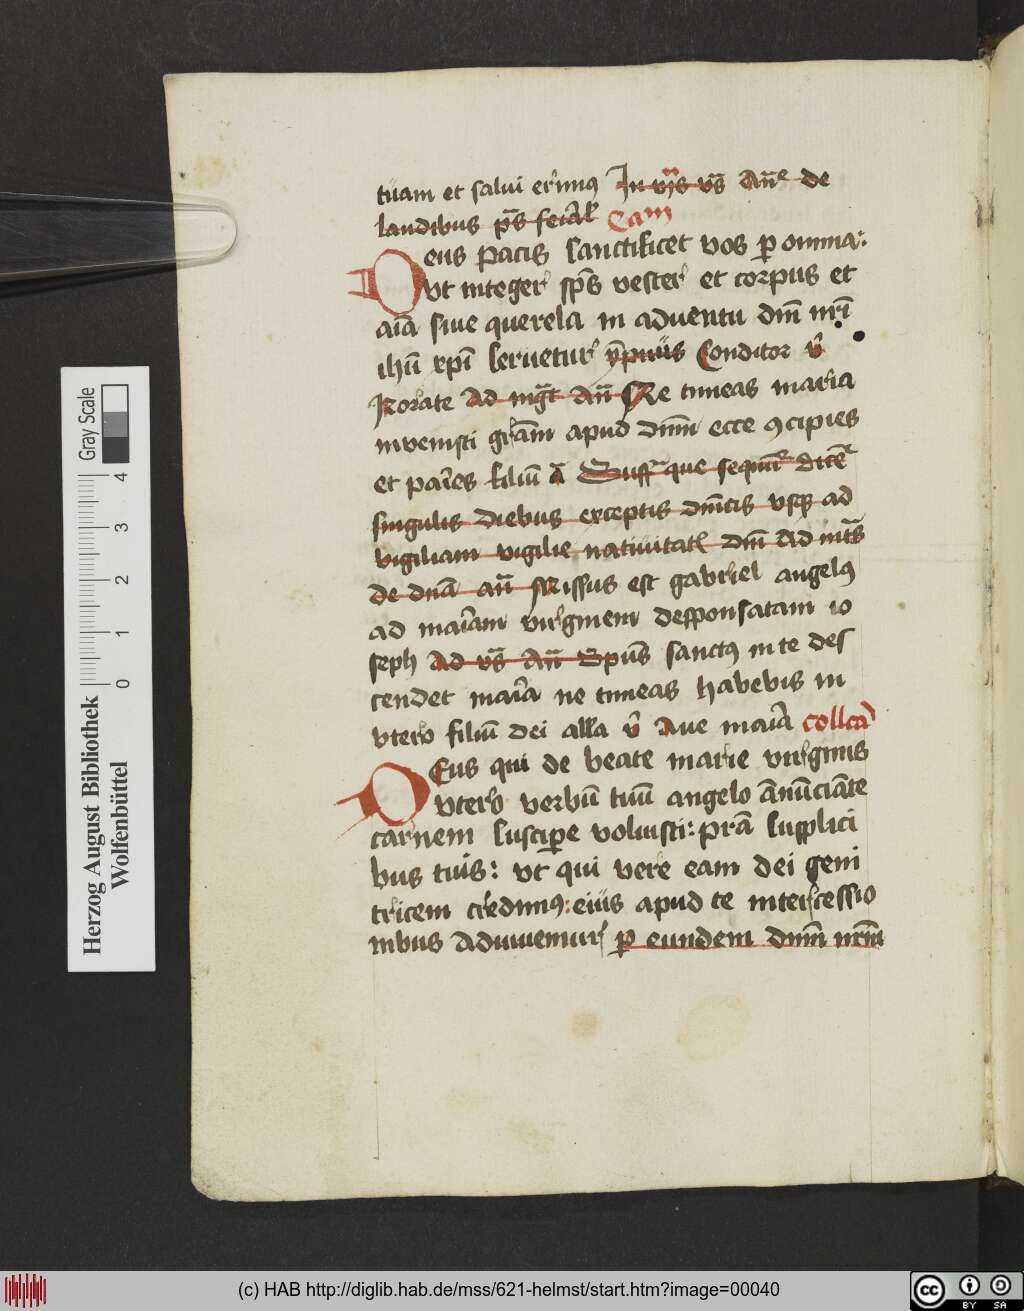 tuam et salui erimus In vṗis vs̄ An̄e de
laudibus ps̄ ferial Cam
Deus pacis sanctificet vos ꝑ omnia:
vt integer sp̄s vester et corpus et
aīa siue querela in aduentu dn̄i nr̄i
ihū xp̄i seruetur ympnus Conditor v̄
Rorate Ad mḡt An̄ Ne timeas maria
inuenisti grām apud dn̄m ecce ꝯcipies
et paries filiū ā Suffra que sequūt dicēt
singulis diebus exceptis dn̄icis vsqꝫ ad
vigiliam vigilie natiuitatis dn̄i Ad mts̄
de dn̄a an̄ Missus est gabriel angelus
ad mariam virginem desponsatam io
seph Ad vs̄ An̄ Spūs sanctus in te des
cendet maria ne timeas habebis in
vtero filiū dei alla v̄ Aue maria Collcā
DEus qui de beate marie virginis
vtero verbū tuū angelo an̄ūciāte
carnem suscipere voluisti: prā supplici
bus tuis: vt qui vere eam dei geni
tricem credimus: eius apud te intercessio
nibus adiuuemur ꝑ eundem dn̄m nr̄m
Gray Scale
0 1 2 3 4
Herzog August Bibliothek
Wolfenbüttel
(c) HAB http://diglib.hab.de/mss/621-helmst/start.htm?image=00040
cc BY SA